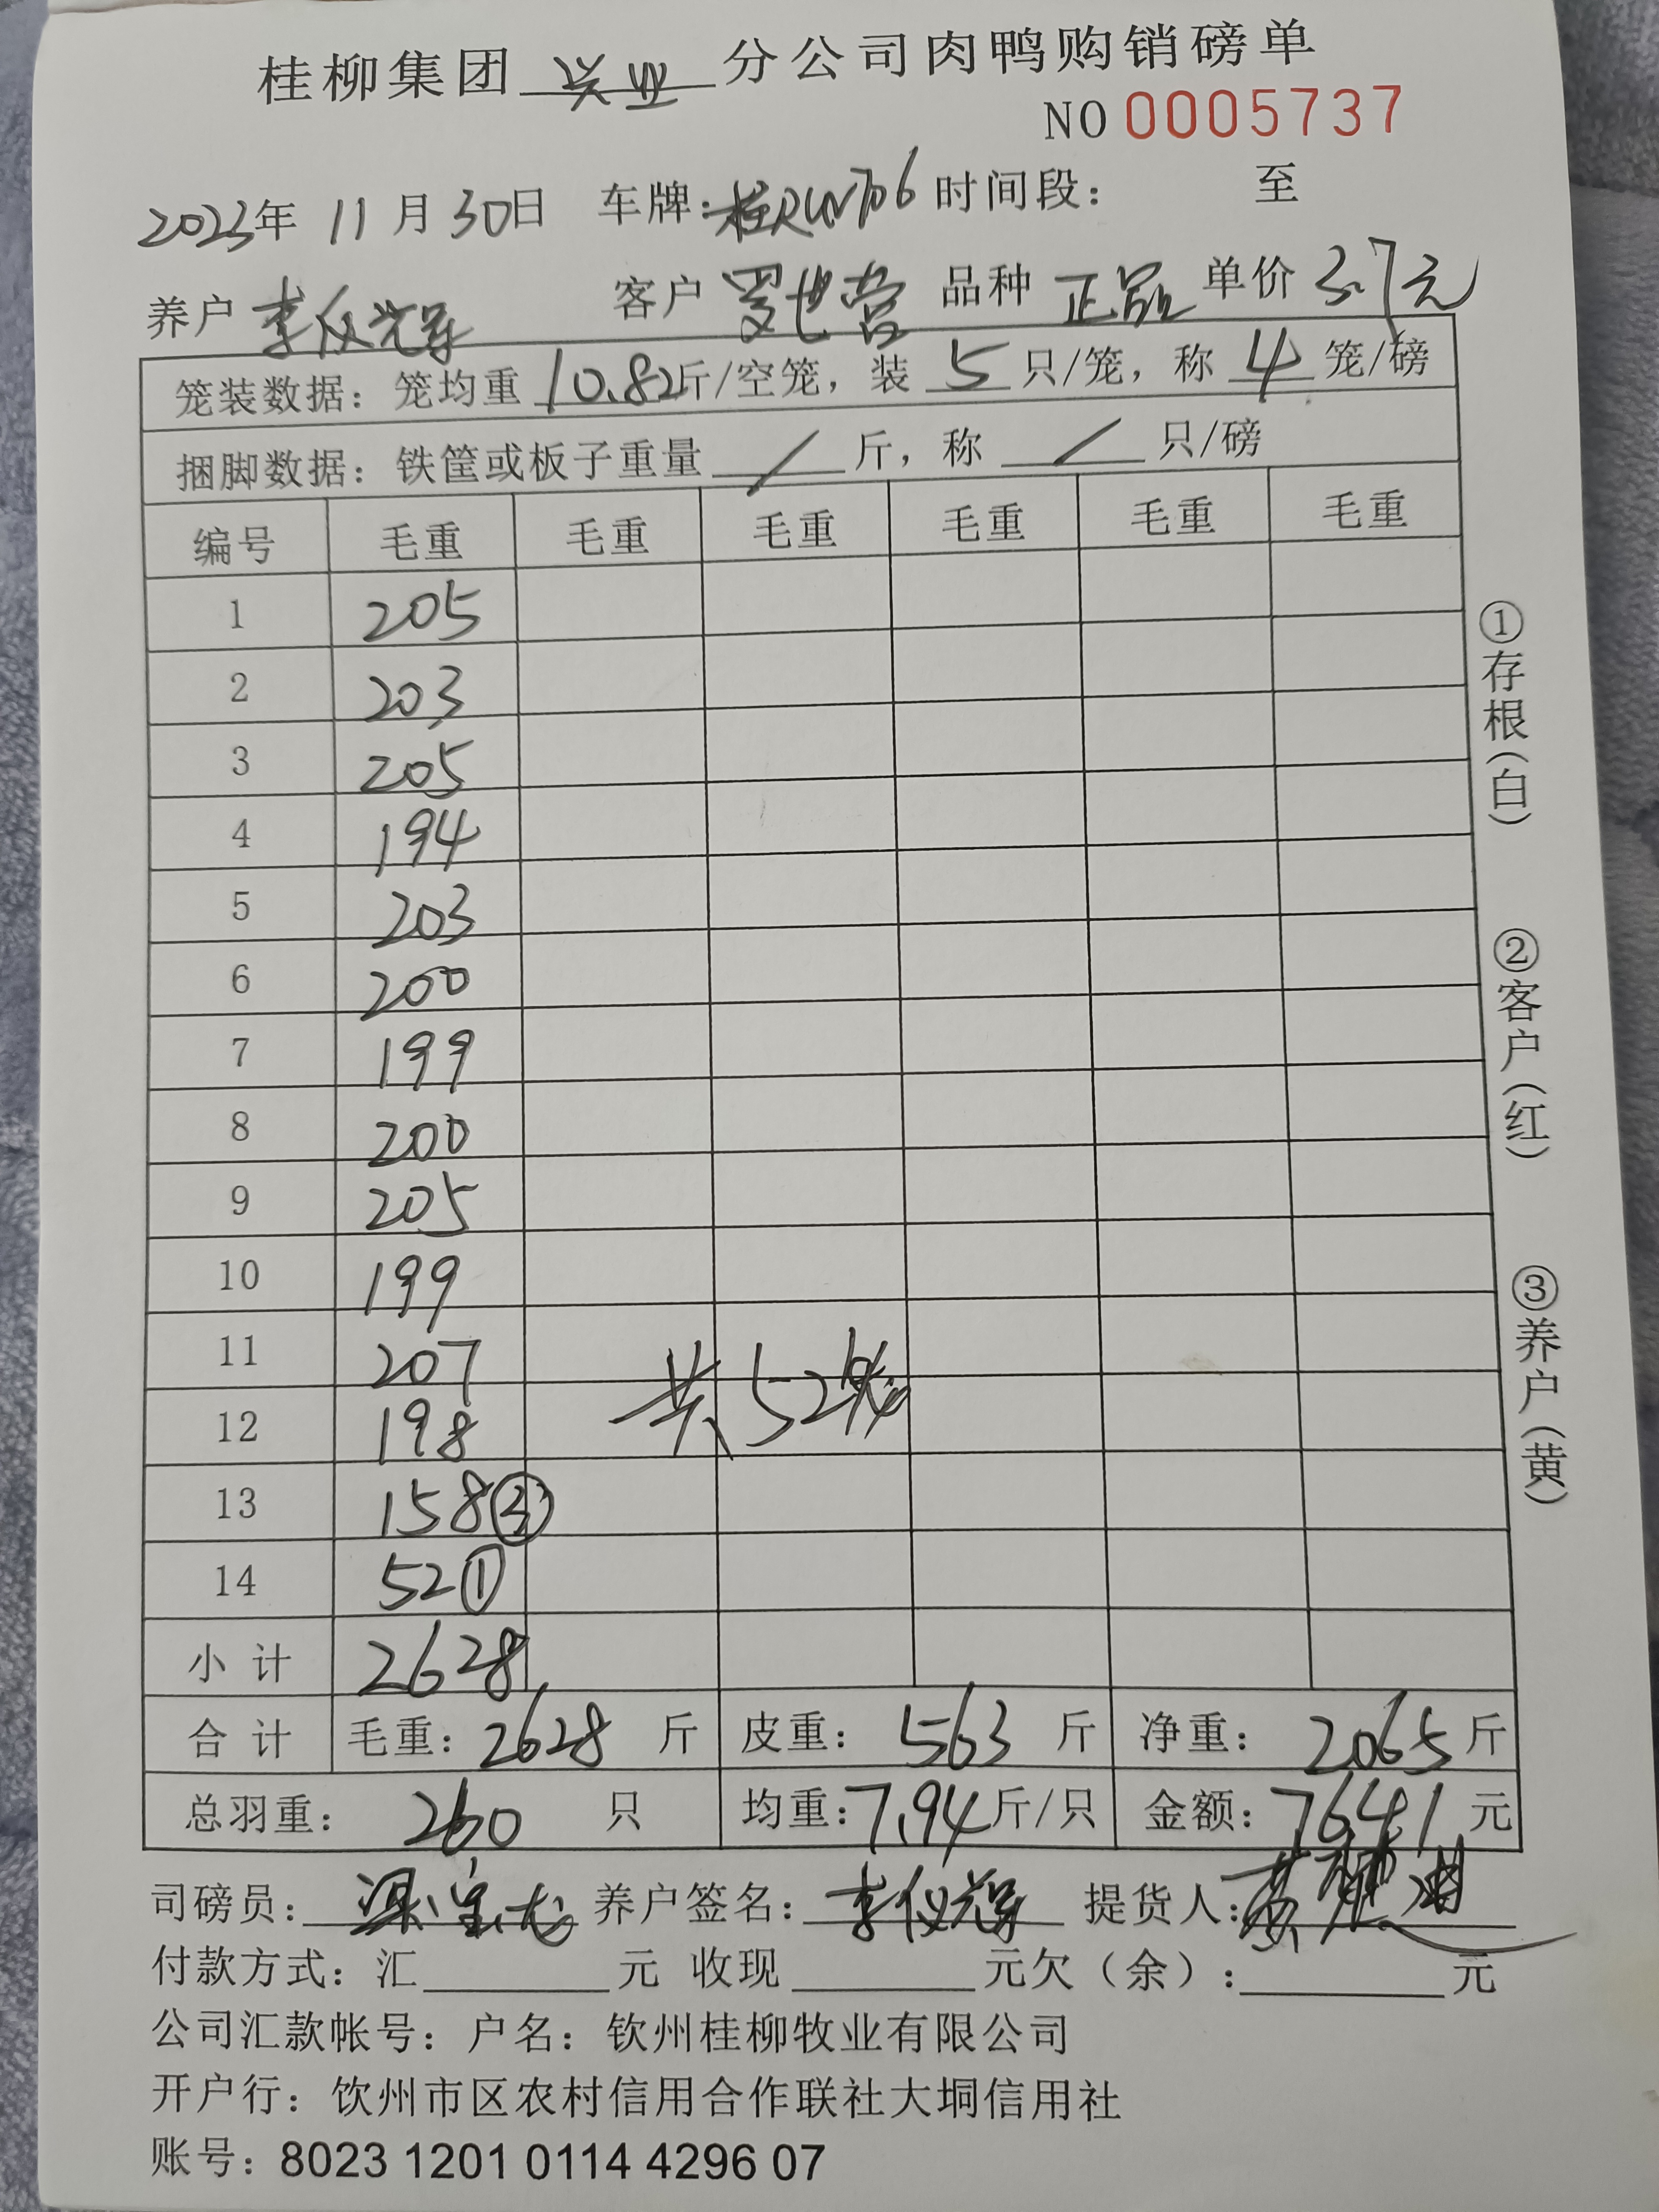 桂柳集团 兴业 分公司肉鸭购销磅单
NO 0005737
2023年 11月30日 车牌: 时间段: 至
养户 李仪先军 客户 罗世营 品种 正品 单价 3.7元
笼装数据: 笼均重 10.82斤/空笼, 装 5 只/笼, 称 4 笼/磅
捆脚数据: 铁筐或板子重量 / 斤, 称 / 只/磅
编号 毛重 毛重 毛重 毛重 毛重 毛重
1 205
2 203
3 205
4 194
5 203
6 200
7 199
8 200
9 205
10 199
11 207
12 198 共52笼
13 158③
14 52①
小计 2628
合计 毛重: 2628 斤 皮重: 563 斤 净重: 2065斤
总羽重: 260 只 均重:7.94斤/只 金额: 7641 元
司磅员: 养户签名: 提货人:
付款方式: 汇 元 收现 元欠(余): 元
公司汇款帐号: 户名: 钦州桂柳牧业有限公司
开户行: 钦州市区农村信用合作联社大垌信用社
账号: 8023 1201 0114 4296 07
①存根(白)
②客户(红)
③养户(黄)